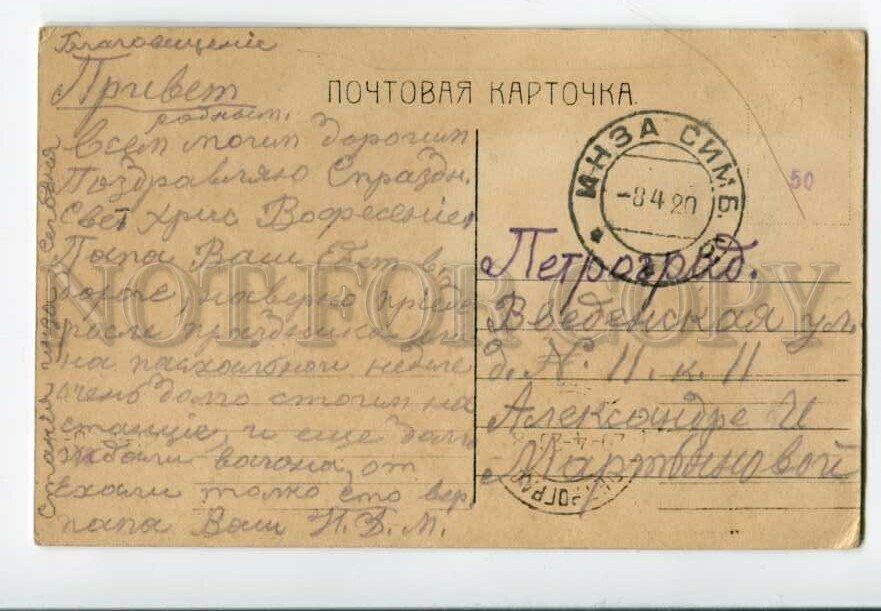 Благовещение
Привет
родным.
всем моим дорогим
Поздравляю Спраздн.
Свет Хрис Восресение
Папа Ваш Едет в
дороге, наверно приеде
после праздника
на пасхальной неделе
очень долго стоим на
станцие, и еще долго
ждали вагона, от
Ехали только сто вер.
папа Ваш И. Б. М.
Станция инза. Сегодня
ПОЧТОВАЯ КАРТОЧКА.
ИНЗА СИМБ.
-8 4 20
50
Петроград.
Введенская ул.
д. N. 11. к. 11
Александре И
Мартыновой
NOT FOR COPY